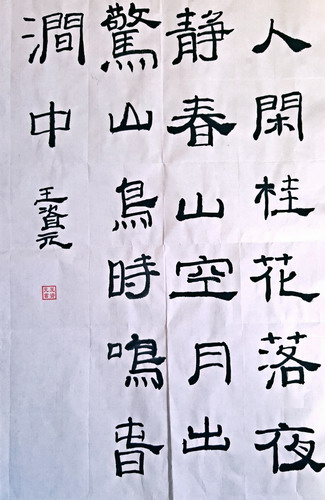 人閑桂花落夜
静春山空月出
驚山鳥時鳴旾
澗中
王資元